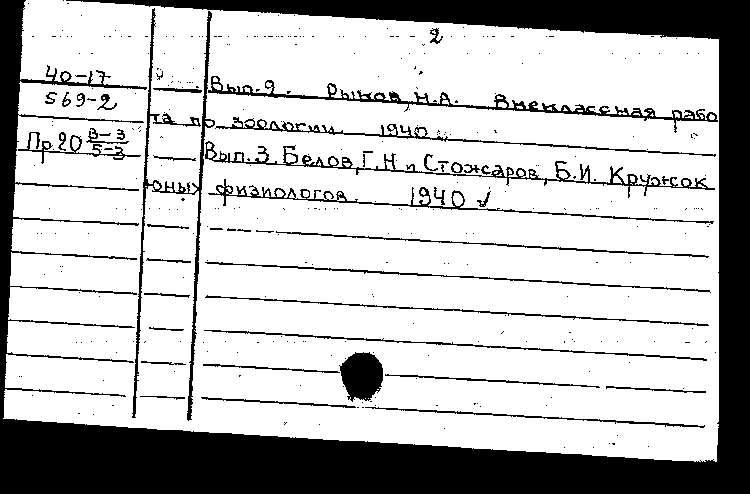 2
40-17
Вып. 2. Рыков, Н.А. Внеклассная рабо
569-2
та по зоологии 1940
Пр.20 В-3/5-3
Вып. 3. Белов, Г.Н и Стожаров, Б.И. Кружок
юных физиологов. 1940 ✓